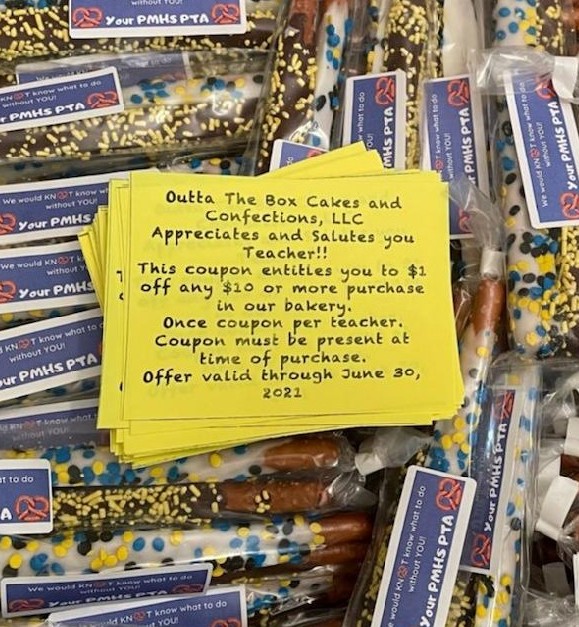 without YOU!
Your PMHS PTA
what to do
without YOU!
Your PMHS PTA
We would KN T know
without YOU!
Your PMHS
We would KN T k
without YOU
Your PMHS
KN T know what to
without YOU!
ur PMHS PTA
T know what to do
Outta The Box Cakes and
Confections, LLC
Appreciates and Salutes you
Teacher!!
This coupon entitles you to $1
off any $10 or more purchase
in our bakery.
Once coupon per teacher.
Coupon must be present at
time of purchase.
Offer valid through June 30,
2021
know what to do
OU!
MHS PTA
what to do
PMHS PTA
We would KN T know what to do
without YOU!
Your PMHS PTA
Your PMHS PTA
would KN T know what to do
without YOU!
Your PMHS PTA
T to do
A
We would KN T know what to do
without YOU!
Your PMHS PTA
We would KN T know what to do
without YOU!
Your PMHS PTA